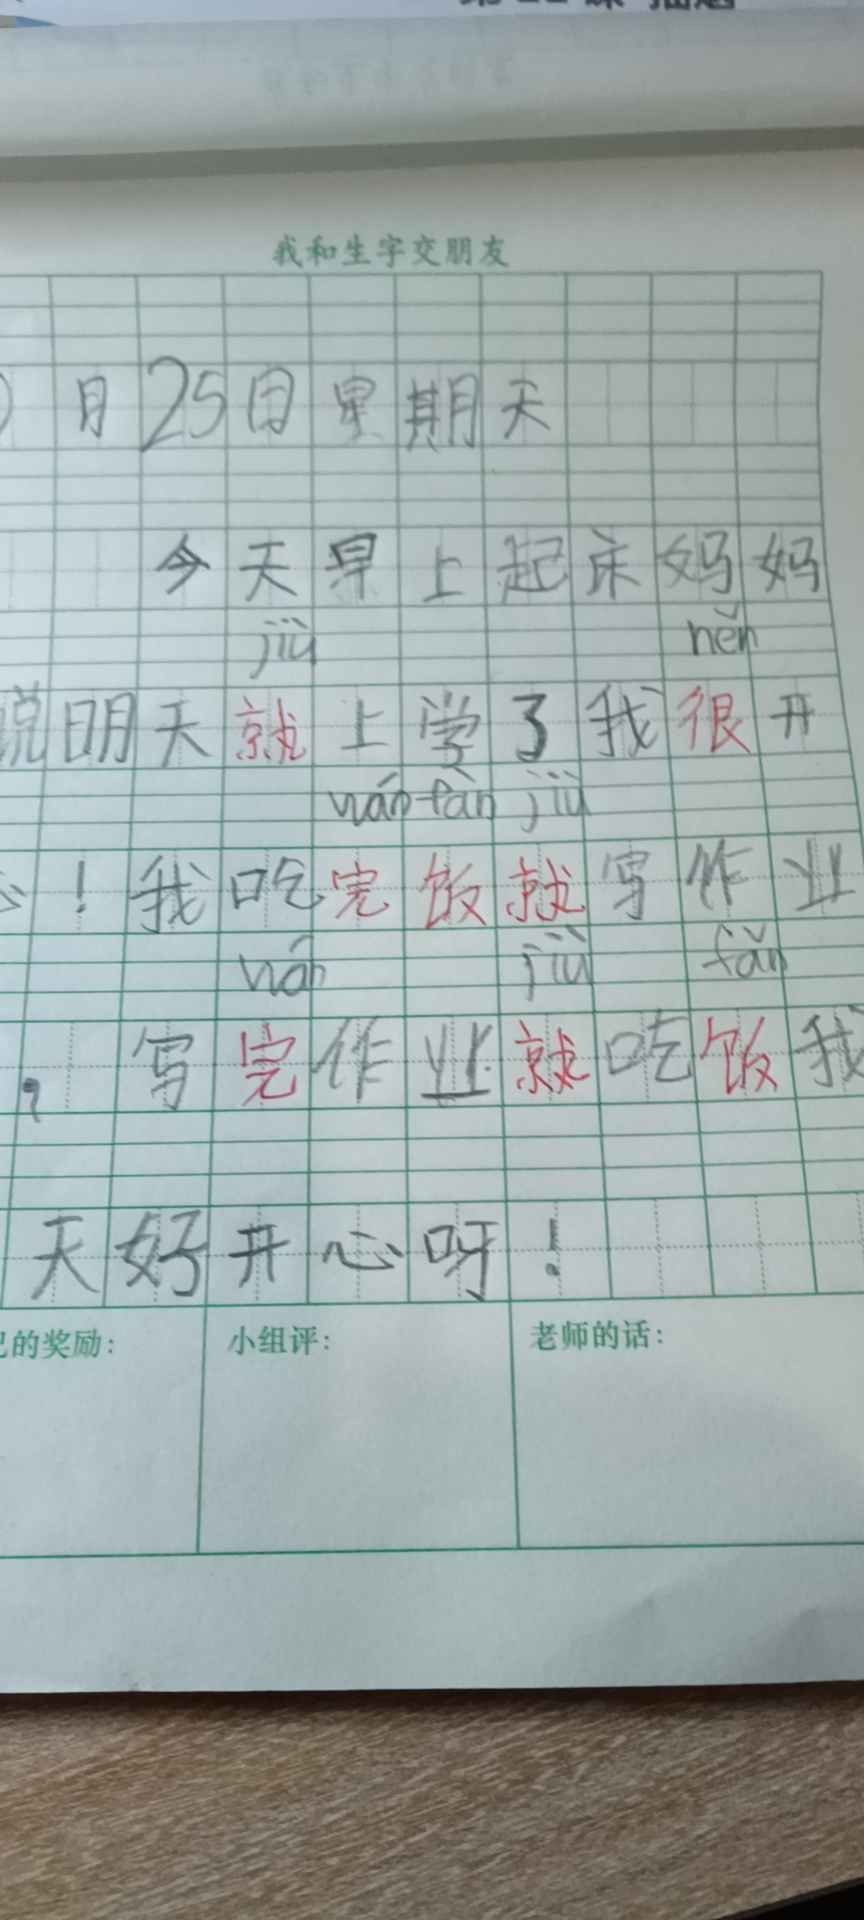 我和生字交朋友
月25日星期天
今天早上起床妈妈
jiù něn
说明天就上学了我很开
wán fàn jiù
心！我吃完饭就写作业
wán jiù fǎn
，写完作业就吃饭我
天好开心呀！
的奖励： 小组评： 老师的话：